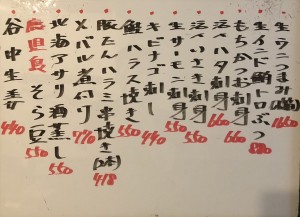 生ウニつまみ(塩) 1650
生インド鮪トロぶつ 880
もちかつお刺身 660
活イハタ刺身 660
活いさき刺身 550
生サーモン刺身 550
キビナゴ刺し 440
鮭ハラス焼き 550
豚たんハラミ串焼き(2本) 418
メバル煮付け 770
北海アサリ酒蒸し 550
鹿児島そら豆 550
谷中生姜 440